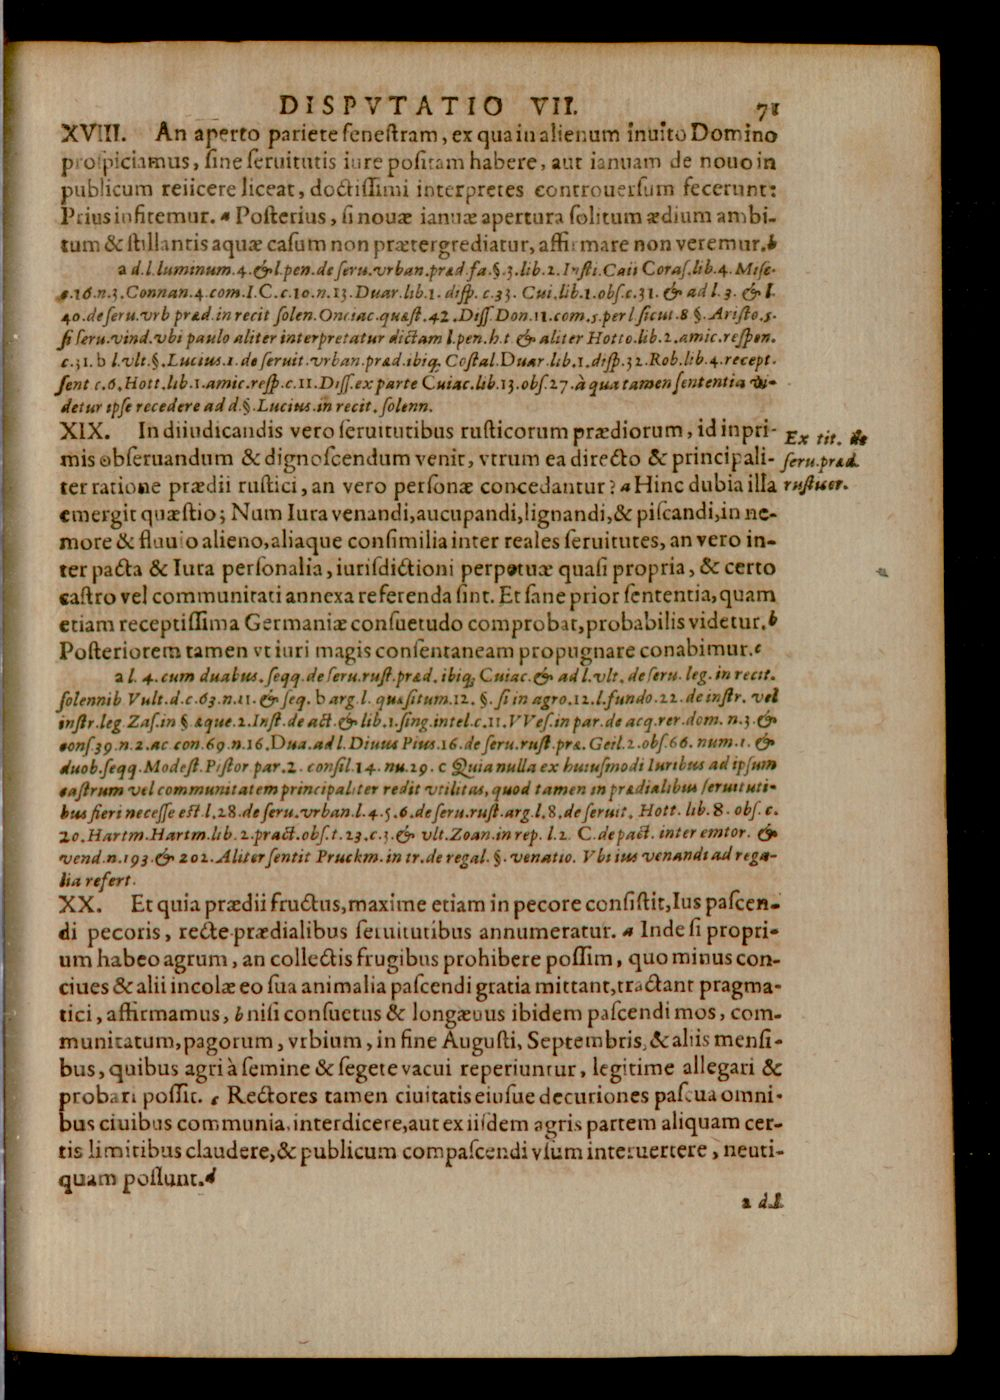 DISPVTATIO VII. 71
XVIII. An aperto pariete feneſtram, ex qua in alienum inuito Domino
proſpiciamus, ſine ſeruitutis iure poſitam habere, aut ianuam de nouo in
publicum reiicere liceat, doctiſſimi interpretes controuerſum fecerunt:
Prius inſitemur. a Poſterius, ſi nouæ ianuæ apertura ſolitum ædium ambi-
tum & ſtillantis aquæ caſum non prætergrediatur, affirmare non veremur. b
a d. l. luminum. 4. & l. pen. de ſeru. vrban. præd. fa. §. 3. lib. 2. Inſti. Caii Coraſ. lib. 4. Miſc.
c. 16. n. 3. Connan. 4. com. I. C. c. 10. n. 13. Duar. lib. 1. diſp. c. 33. Cui. lib. 1. obſ. c. 31. & ad l. 3. & l.
40. de ſeru. vrb præd. in recit ſolen. Onciac. quæſt. 42. Diſſ. Don. 11. com. 5. per l. ſicut. 8 §. Ariſto, 5.
ſi ſeru. vind. vbi paulo aliter interpretatur dictam l. pen. h. t & aliter Hotto. lib. 2. amic. reſpon.
c. 31. b l. vlt. §. Lucius. 1. de ſeruit. vrban. præd. ibiq; Coſtal. Duar. lib. 1. diſp. 32. Rob. lib. 4. recept.
ſent c. 6. Hott. lib. 1. amic. reſp. c. 11. Diſſ. ex parte Cuiac. lib. 13. obſ. 27. à qua tamen ſententia vi-
detur ipſe recedere ad d. §. Lucius. in recit. ſolenn.
XIX. In diiudicandis vero ſeruitutibus ruſticorum prædiorum, id inpri-
mis obſeruandum & dignoſcendum venit, vtrum ea directo & principali-
ter ratione prædii ruſtici, an vero perſonæ concedantur? a Hinc dubia illa
emergit quæſtio; Num Iura venandi, aucupandi, lignandi, & piſcandi, in ne-
more & fluuio alieno, aliaque conſimilia inter reales ſeruitutes, an vero in-
ter pacta & Iura perſonalia, iurisdictioni perpetuæ quaſi propria, & certo
caſtro vel communitati annexa referenda ſint. Et ſane prior ſententia, quam
etiam receptiſſima Germaniæ conſuetudo comprobat, probabilis videtur. b
Poſteriorem tamen vt iuri magis conſentaneam propugnare conabimur. c
Ex tit. de
ſeru. præd.
ruſticor.
a l. 4. cum duabus. ſeqq. de ſeru. ruſt. præd. ibiq; Cuiac. & ad l. vlt. de ſeru. leg. in recit.
ſolennib Vult. d. c. 63. n. 11. & ſeq. b arg. l. quæſitum. 12. §. ſi in agro. 12. l. fundo. 22. de inſtr. vel
inſtr. leg. Zaſ. in § æque. 2. Inſt. de act. & lib. 1. ſing. intel. c. 11. VVeſ. in par. de acq. rer. dom. n. 3. &
conſ 39. n. 2. ac con. 69. n. 16. Dua. ad l. Diuus Pius. 16. de ſeru. ruſt. præ. Geil. 2. obſ. 66. num. 1. &
duob. ſeqq. Modeſt. Piſtor par. 2. conſil. 14. nu. 29. c Quia nulla ex huiuſmodi Iuribus ad ipſum
caſtrum vel communitatem principaliter redit vtilitas, quod tamen in prædialibus ſeruituti-
bus fieri neceſſe eſt. l. 28. de ſeru. vrban. l. 4. 5. 6. de ſeru. ruſt. arg. l. 8. de ſeruit. Hott. lib. 8. obſ. c.
20. Hartm. Hartm. lib. 2. pract. obſ. t. 23. c. 3. & vlt. Zoan. in rep. l. 2. C. de pact. inter emtor. &
vend. n. 193. & 202. Aliter ſentit Pruckm. in tr. de regal. §. venatio. Vbi ius venandi ad rega-
lia refert.
XX. Et quia prædii fructus, maxime etiam in pecore conſiſtit, Ius paſcen-
di pecoris, recte prædialibus ſeruitutibus annumeratur. a Inde ſi propri-
um habeo agrum, an collectis frugibus prohibere poſſim, quo minus con-
ciues & alii incolæ eo ſua animalia paſcendi gratia mittant, tractant pragma-
tici, affirmamus, b niſi conſuetus & longæuus ibidem paſcendi mos, com-
munitatum, pagorum, vrbium, in fine Auguſti, Septembris, & aliis menſi-
bus, quibus agri à ſemine & ſegete vacui reperiuntur, legitime allegari &
probari poſſit. c Rectores tamen ciuitatis eiuſue decuriones paſcua omni-
bus ciuibus communia, interdicere, aut ex iiſdem agris partem aliquam cer-
tis limitibus claudere, & publicum compaſcendi vſum interuertere, neuti-
quam poſſunt. d
a d. l.